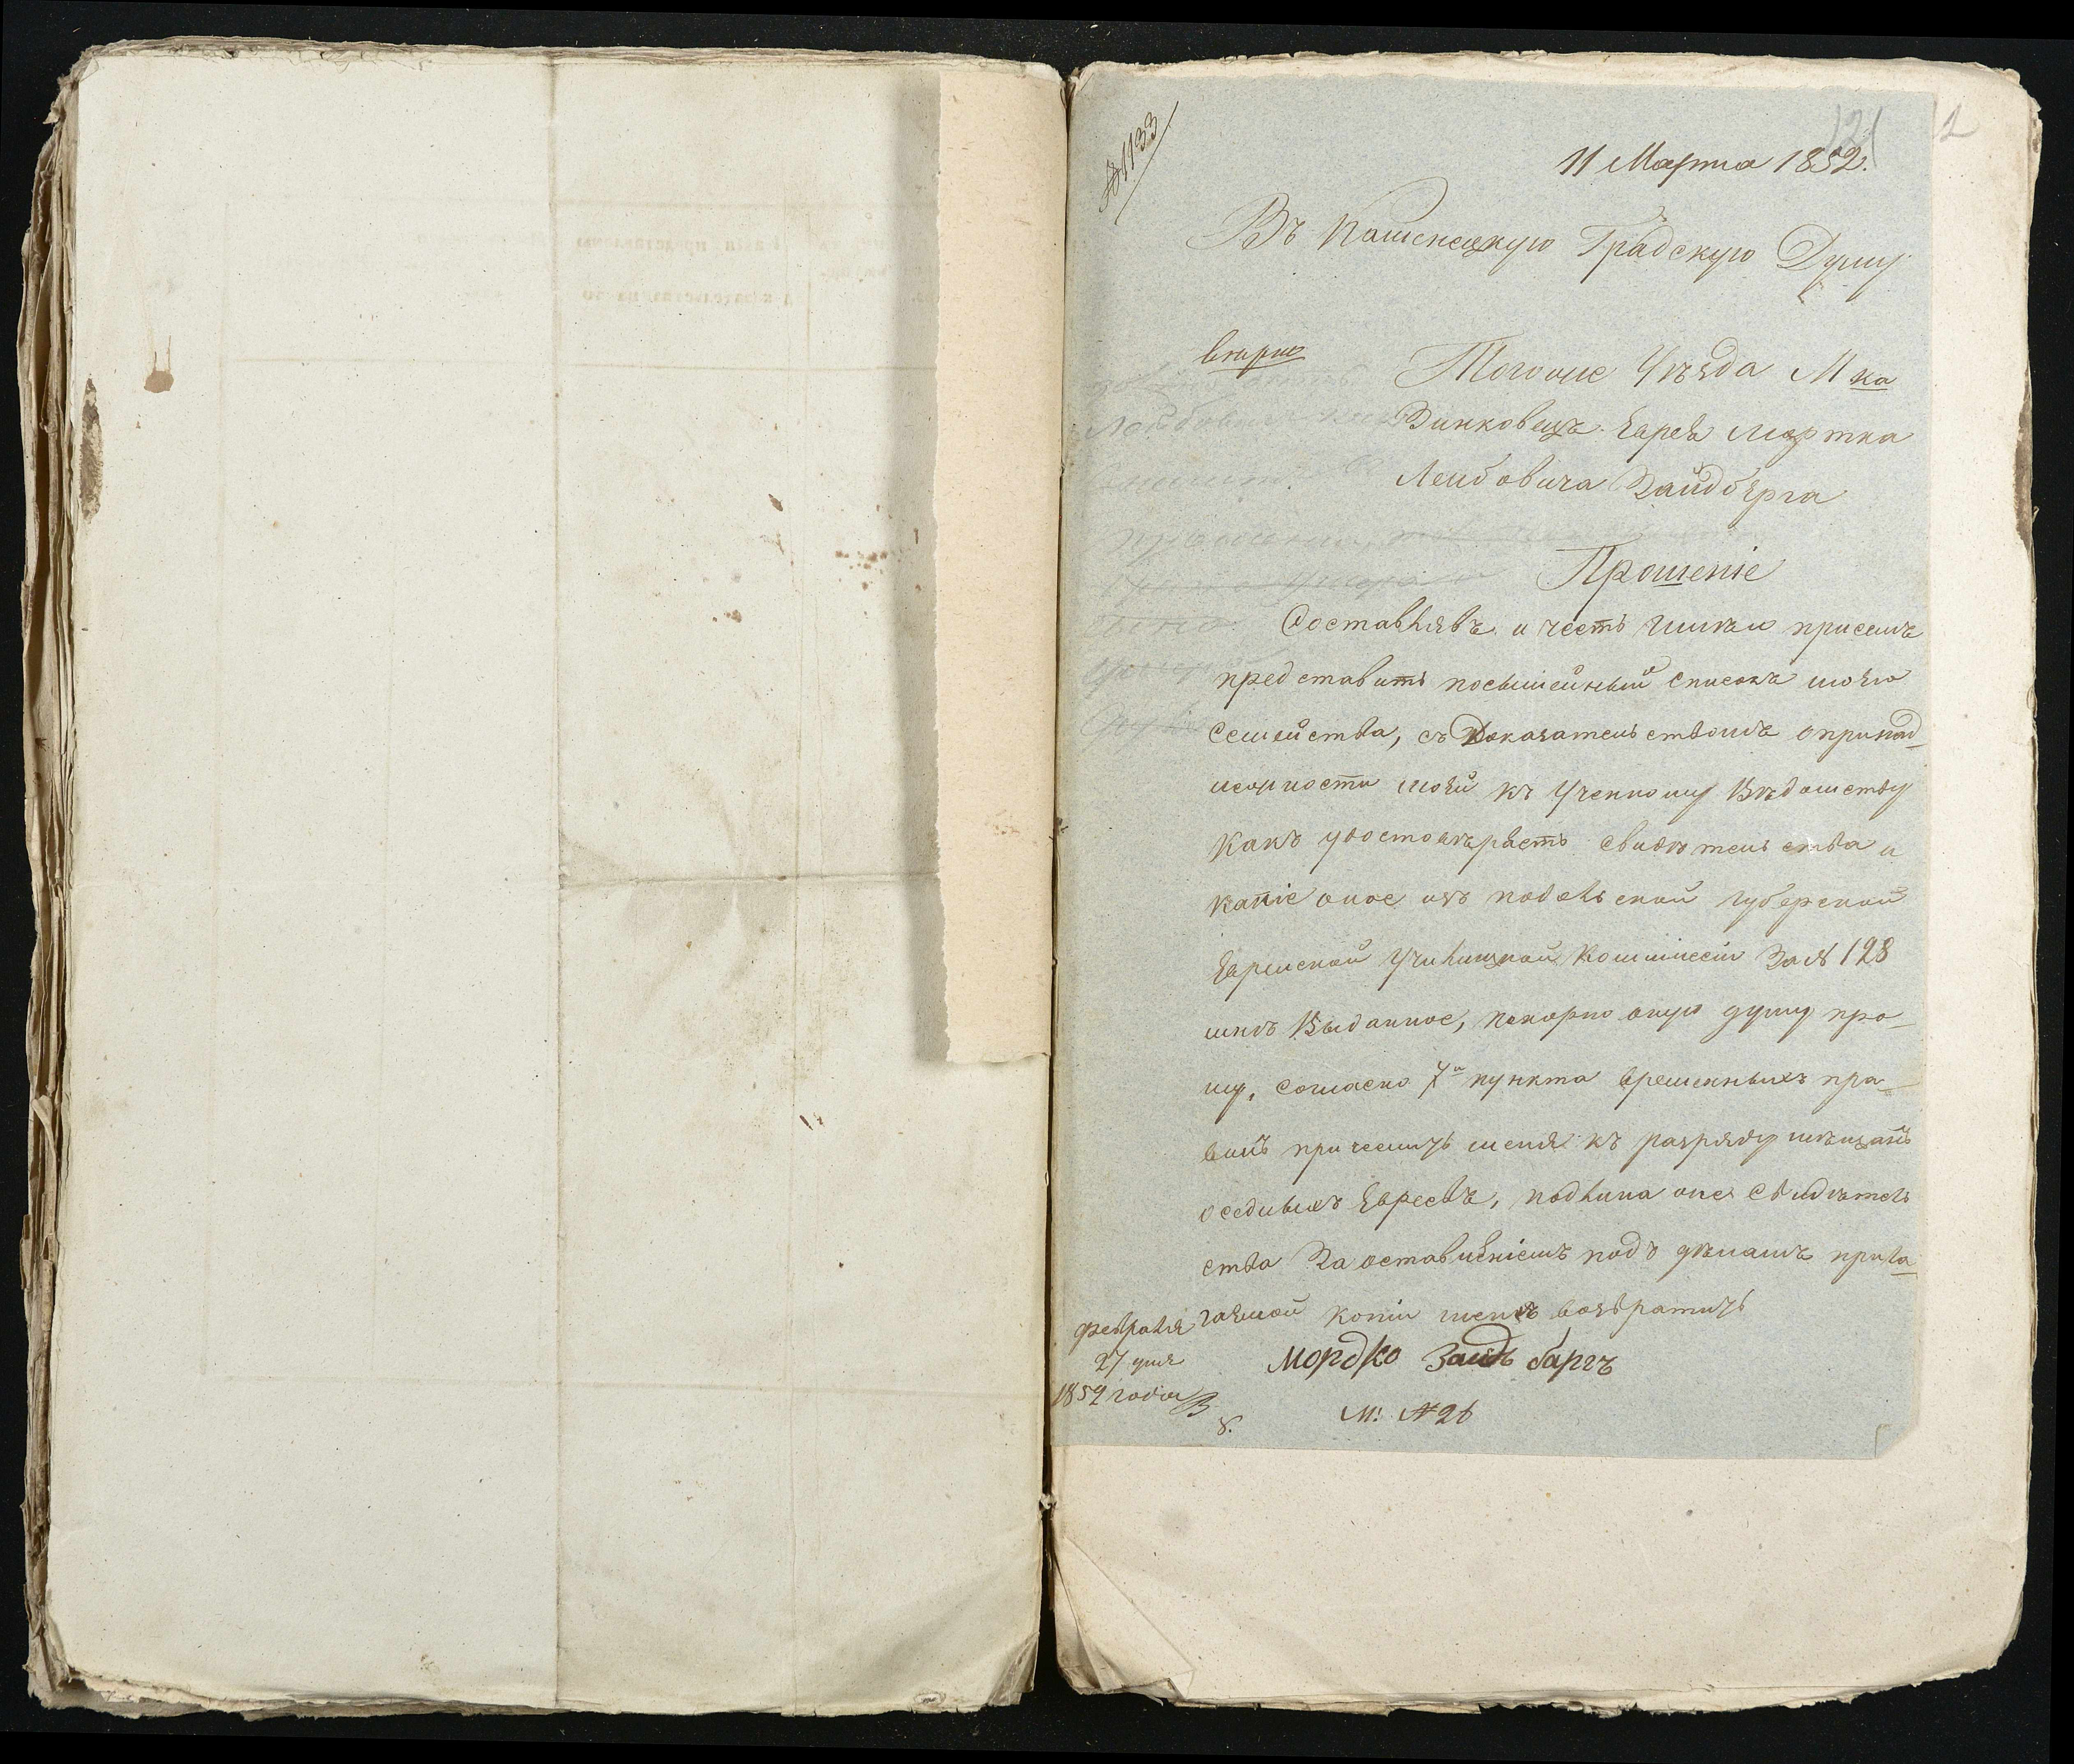 №1133
121
11 Марта 1852.
Въ Каменецкую Градскую Думу
Тогоже Уѣзда М ка
Зинковецъ Еврея Мортка
Лейбовича Зайдберга
Прошеніе
Составлявъ и честь имѣю присемъ
представить посемейный списокъ моего
Семейства, съ Доказательствомъ опринад-
лежности моей къ Ученному Вѣдомству
Какъ удостовѣряетъ свидѣтельства и
капіе оное изъ подольской губерской
Еврейской Училищной Коммиссіи За № 128
мнѣ Выданное, покорно оную думу про-
шу, согласно 7й пункта временныхъ пра-
вилъ причесмить меня къ разряду мѣщанъ
оседлыхъ Евреевъ, подлина оное Свидѣтель
ства За оставленіемъ подъ дѣламъ прила
гаемой копіи менѣ возвратить
февраля
27 дня
1852 года
Мордко Заидъ баргъ
М: №26